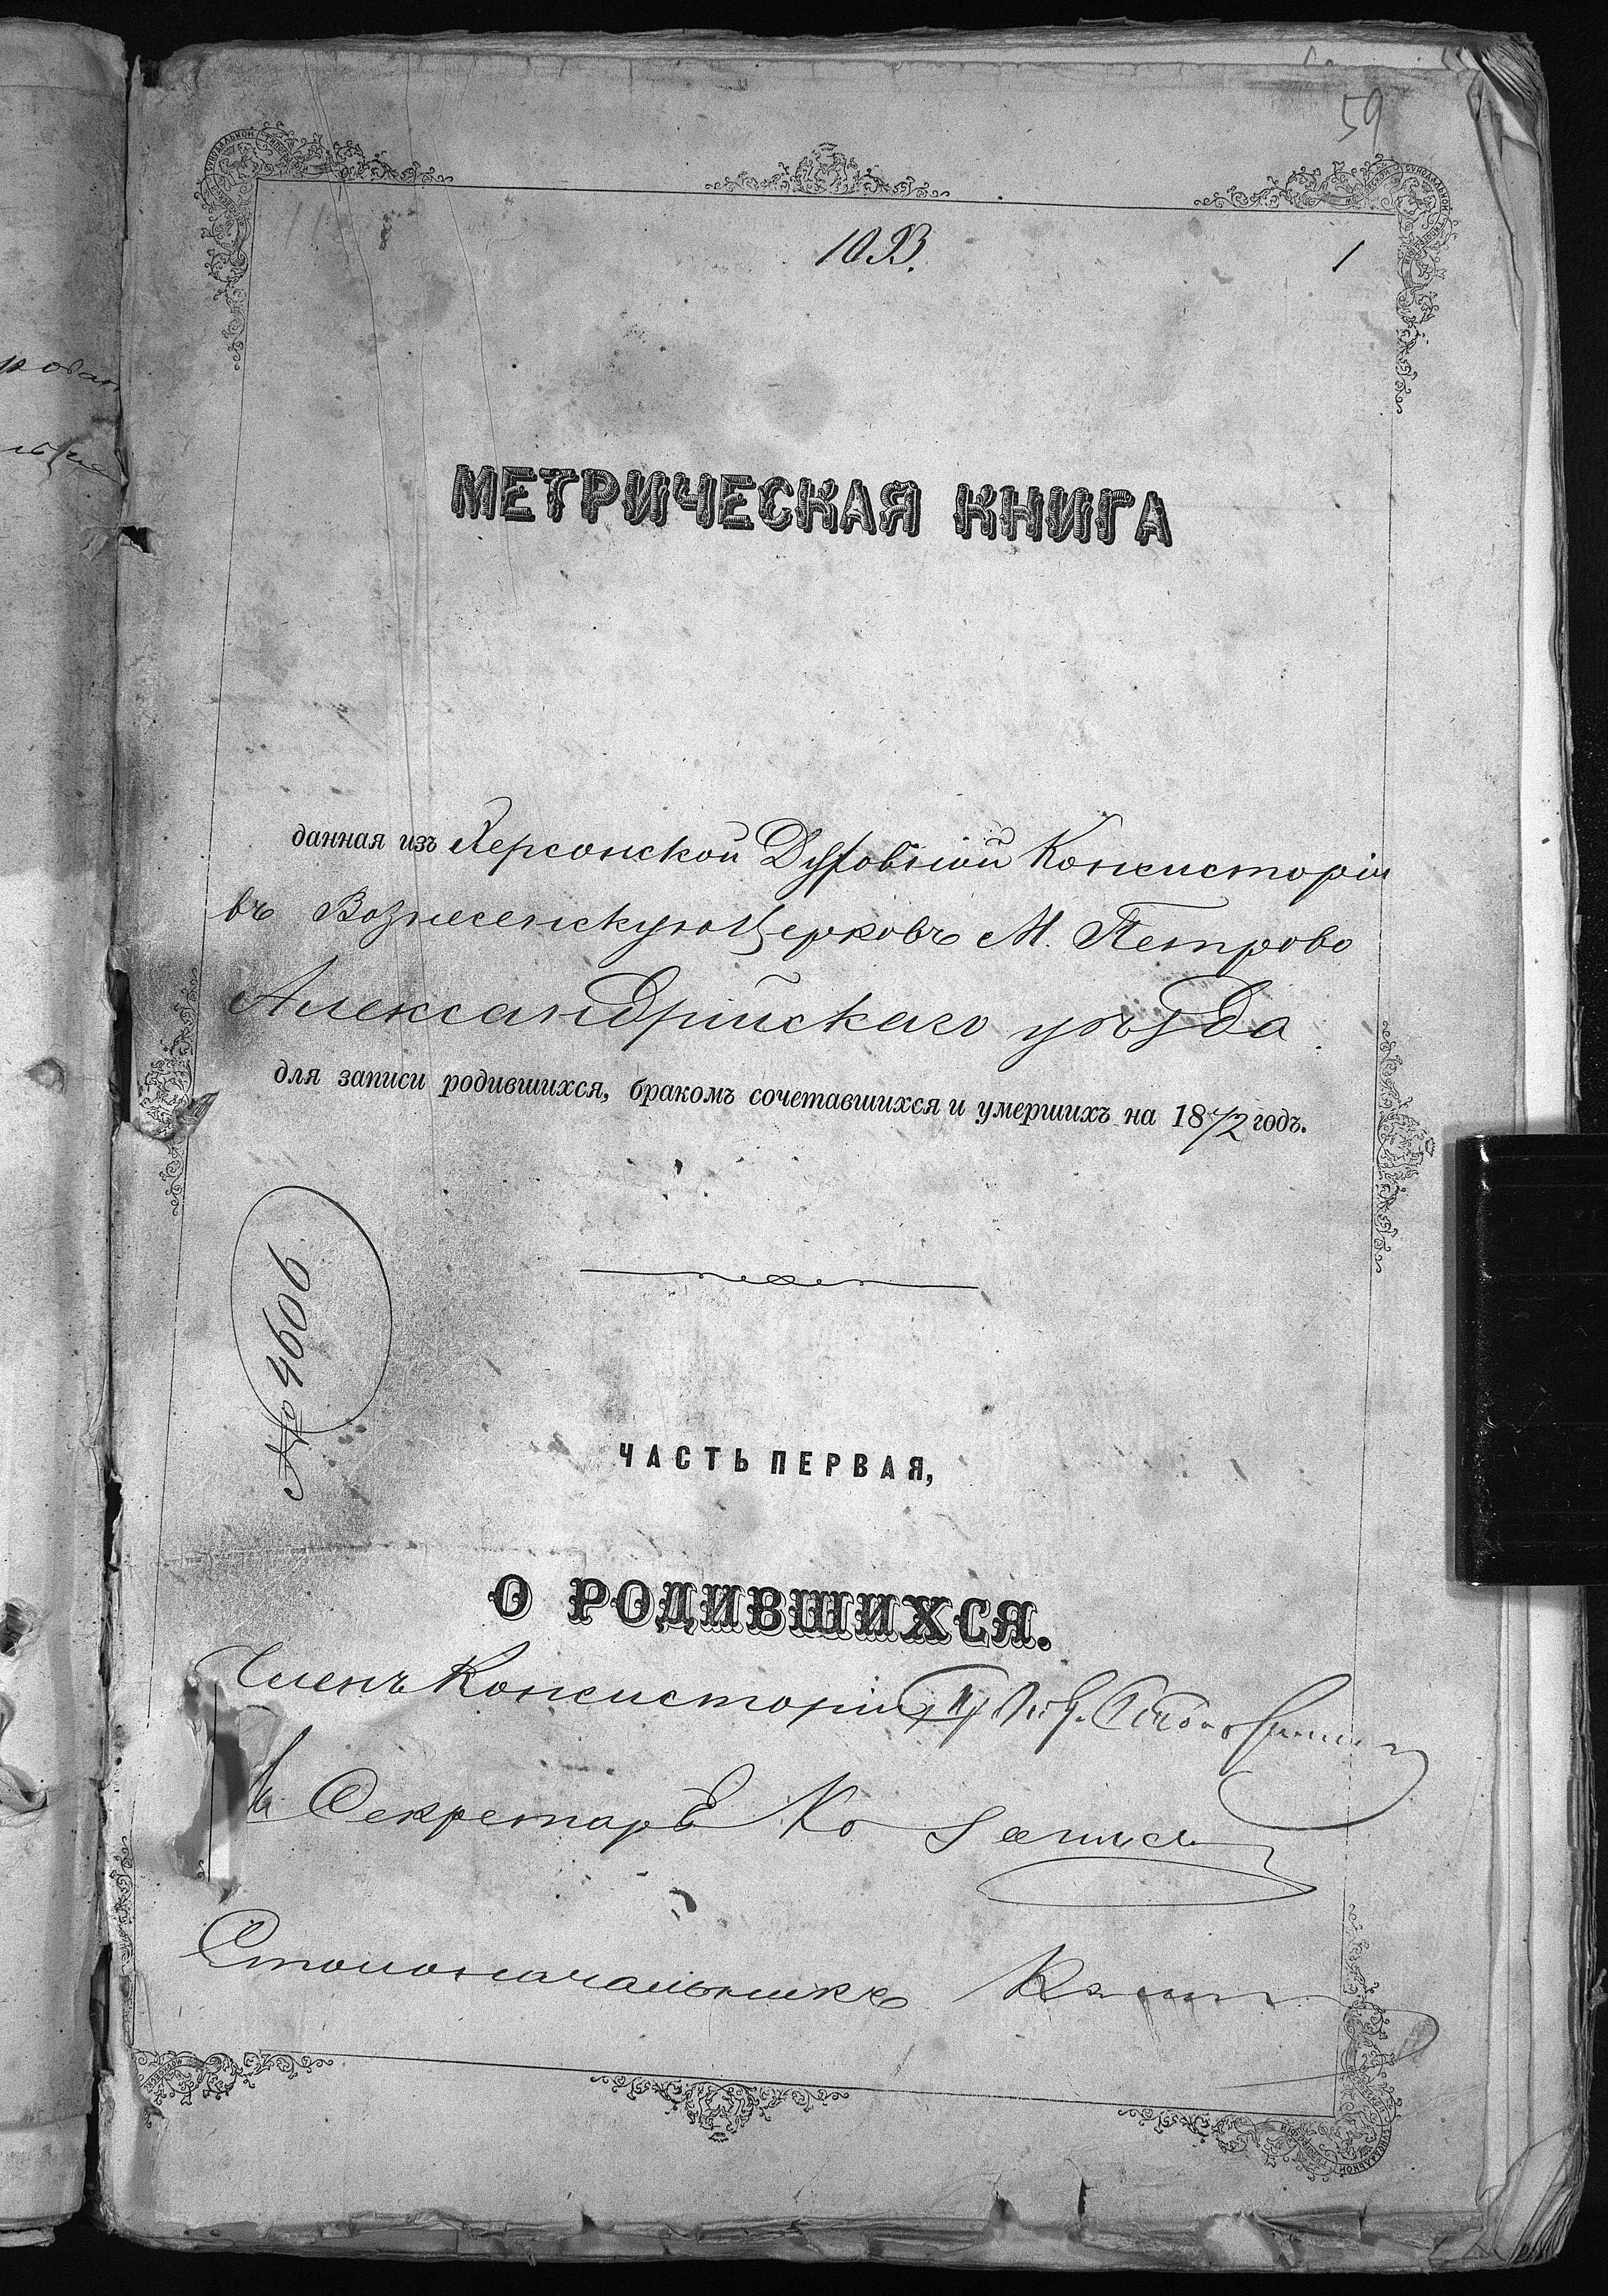 59
1093.
1
МЕТРИЧЕСКАЯ КНИГА
данная изъ Херсонской Духовной Консисторіи
въ Вознесенскую Церковь М. Петрово
Александрійскаго уѣзда
для записи родившихся, бракомъ сочетавшихся и умершихъ на 1872 годъ.
№ 4606
ЧАСТЬ ПЕРВАЯ,
О РОДИВШИХСЯ.
Членъ Консисторіи
Секретарь
Столоначальникъ